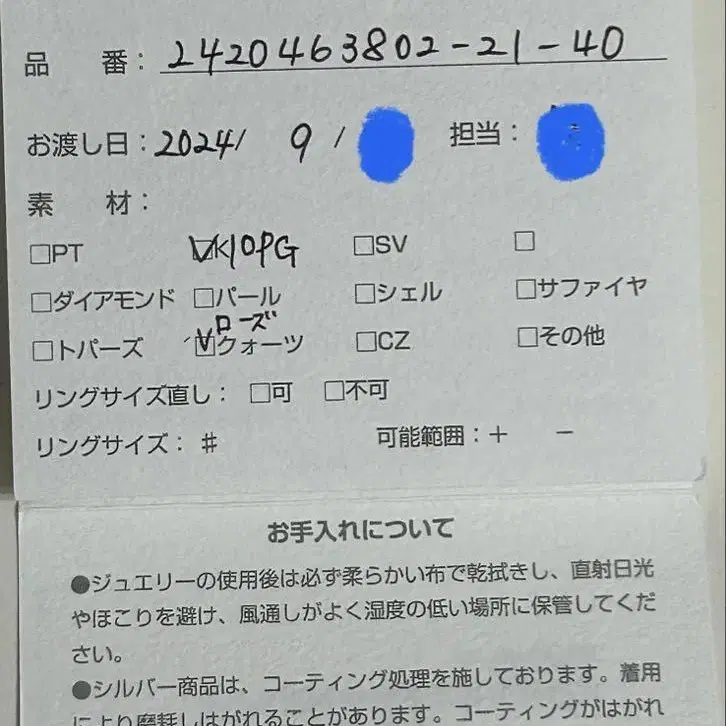 品 番：2420463802-21-40
お渡し日：2024/ 9 / 担当：
素 材：
□PT ☑K10PG □SV □
□ダイアモンド □パール □シェル □サファイヤ
ローズ
□トパーズ ☑クォーツ □CZ □その他
リングサイズ直し：□可 □不可
リングサイズ：♯ 可能範囲：＋ −
お手入れについて
●ジュエリーの使用後は必ず柔らかい布で乾拭きし、直射日光
やほこりを避け、風通しがよく湿度の低い場所に保管してくだ
さい。
●シルバー商品は、コーティング処理を施しております。着用
により磨耗しはがれることがあります。コーティングがはがれ